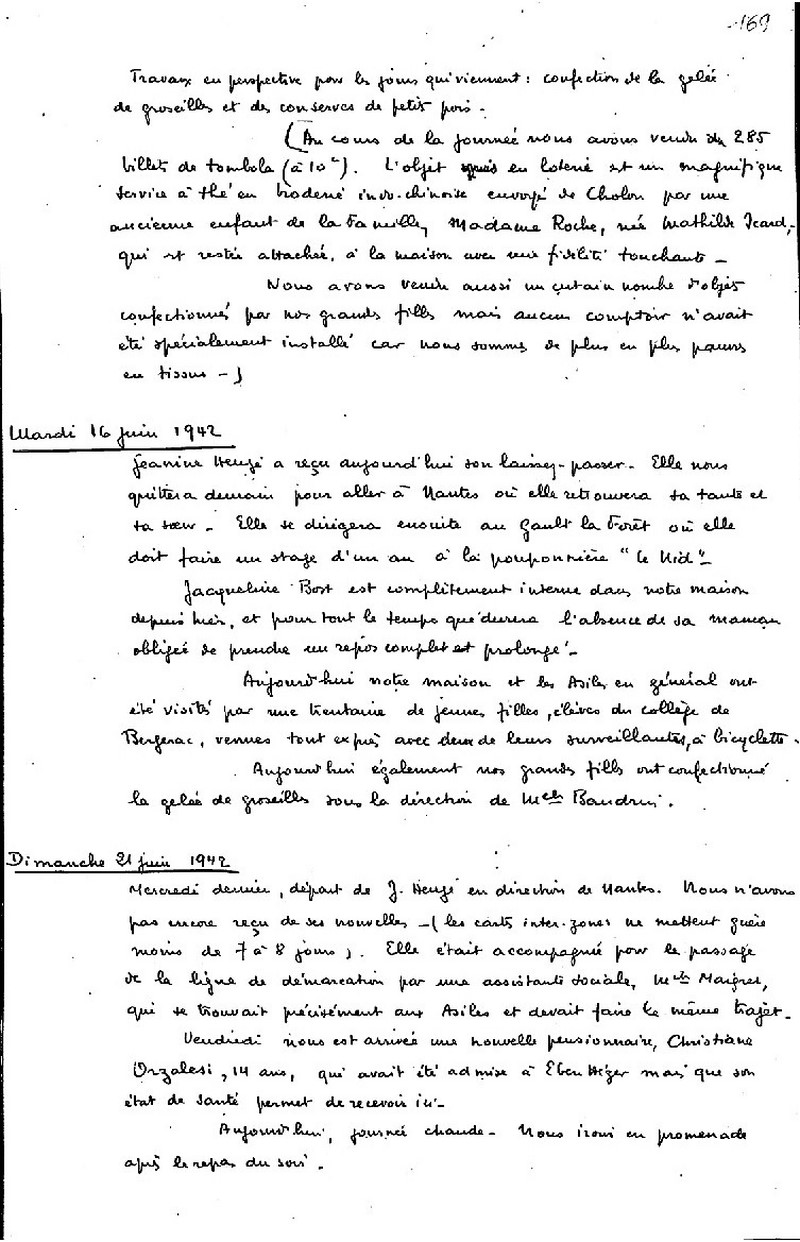 169
Travaux en perspective pour les jours qui viennent : confection de la gelée
de groseilles et des conserves de petits pois -
(Au cours de la journée nous avons vendu 285
billets de tombola (à 10f). L'objet mis en loterie est un magnifique
service à thé en broderie indo-chinoise envoyé de Cholon par une
ancienne enfant de la Famille, Madame Roche, née Mathilde Icard,
qui est restée attachée, à la maison avec une fidélité touchante -
Nous avons vendu aussi un certain nombre d'objets
confectionnés par nos grandes filles mais aucun comptoir n'avait
été spécialement installé car nous sommes de plus en plus pauvres
en tissus -)
Mardi 16 juin 1942
Jeanine Heuzé a reçu aujourd'hui son laissez-passer. Elle nous
quittera demain pour aller à Nantes où elle retrouvera sa tante et
sa sœur. Elle se dirigera ensuite au Gault la Forêt où elle
doit faire un stage d'un an à la pouponnière "le Nid" -
Jacqueline Bost est complètement interne dans notre maison
depuis hier, et pour tout le temps que durera l'absence de sa maman
obligée de prendre un repos complet et prolongé -
Aujourd'hui notre maison et les Asiles en général ont
été visités par une trentaine de jeunes filles, élèves du collège de
Bergerac, venues tout exprès avec deux de leurs surveillantes, à bicyclette.
Aujourd'hui également nos grandes filles ont confectionné
la gelée de groseilles sous la direction de Melle
Dimanche 21 juin 1942
Mercredi dernier, départ de J. Heuzé en direction de Nantes. Nous n'avons
pas encore reçu de ses nouvelles - (les cartes inter-zones ne mettent guère
moins de 7 à 8 jours). Elle était accompagnée pour le passage
de la ligne de démarcation par une assistante sociale, Melle Maigret,
qui se trouvait précisément aux Asiles et devait faire le même trajet -
Vendredi nous est arrivée une nouvelle pensionnaire, Christiane
Orzalesi, 14 ans, qui avait été admise à Eben Hézer mais que son
état de santé permet de recevoir ici -
Aujourd'hui, journée chaude - Nous irons en promenade
après le repas du soir.